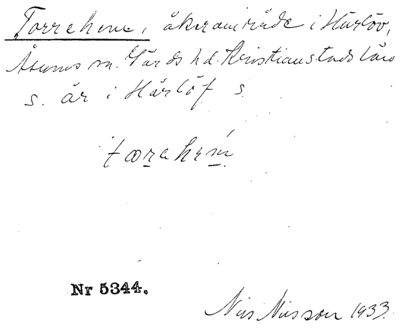 Torrehem, åkerområde i Härlöv,
Åsums sn. Gärds hd. Kristianstads län
s. är i Härlöf s
Nr 5344.
Nils Nilsson 1933.